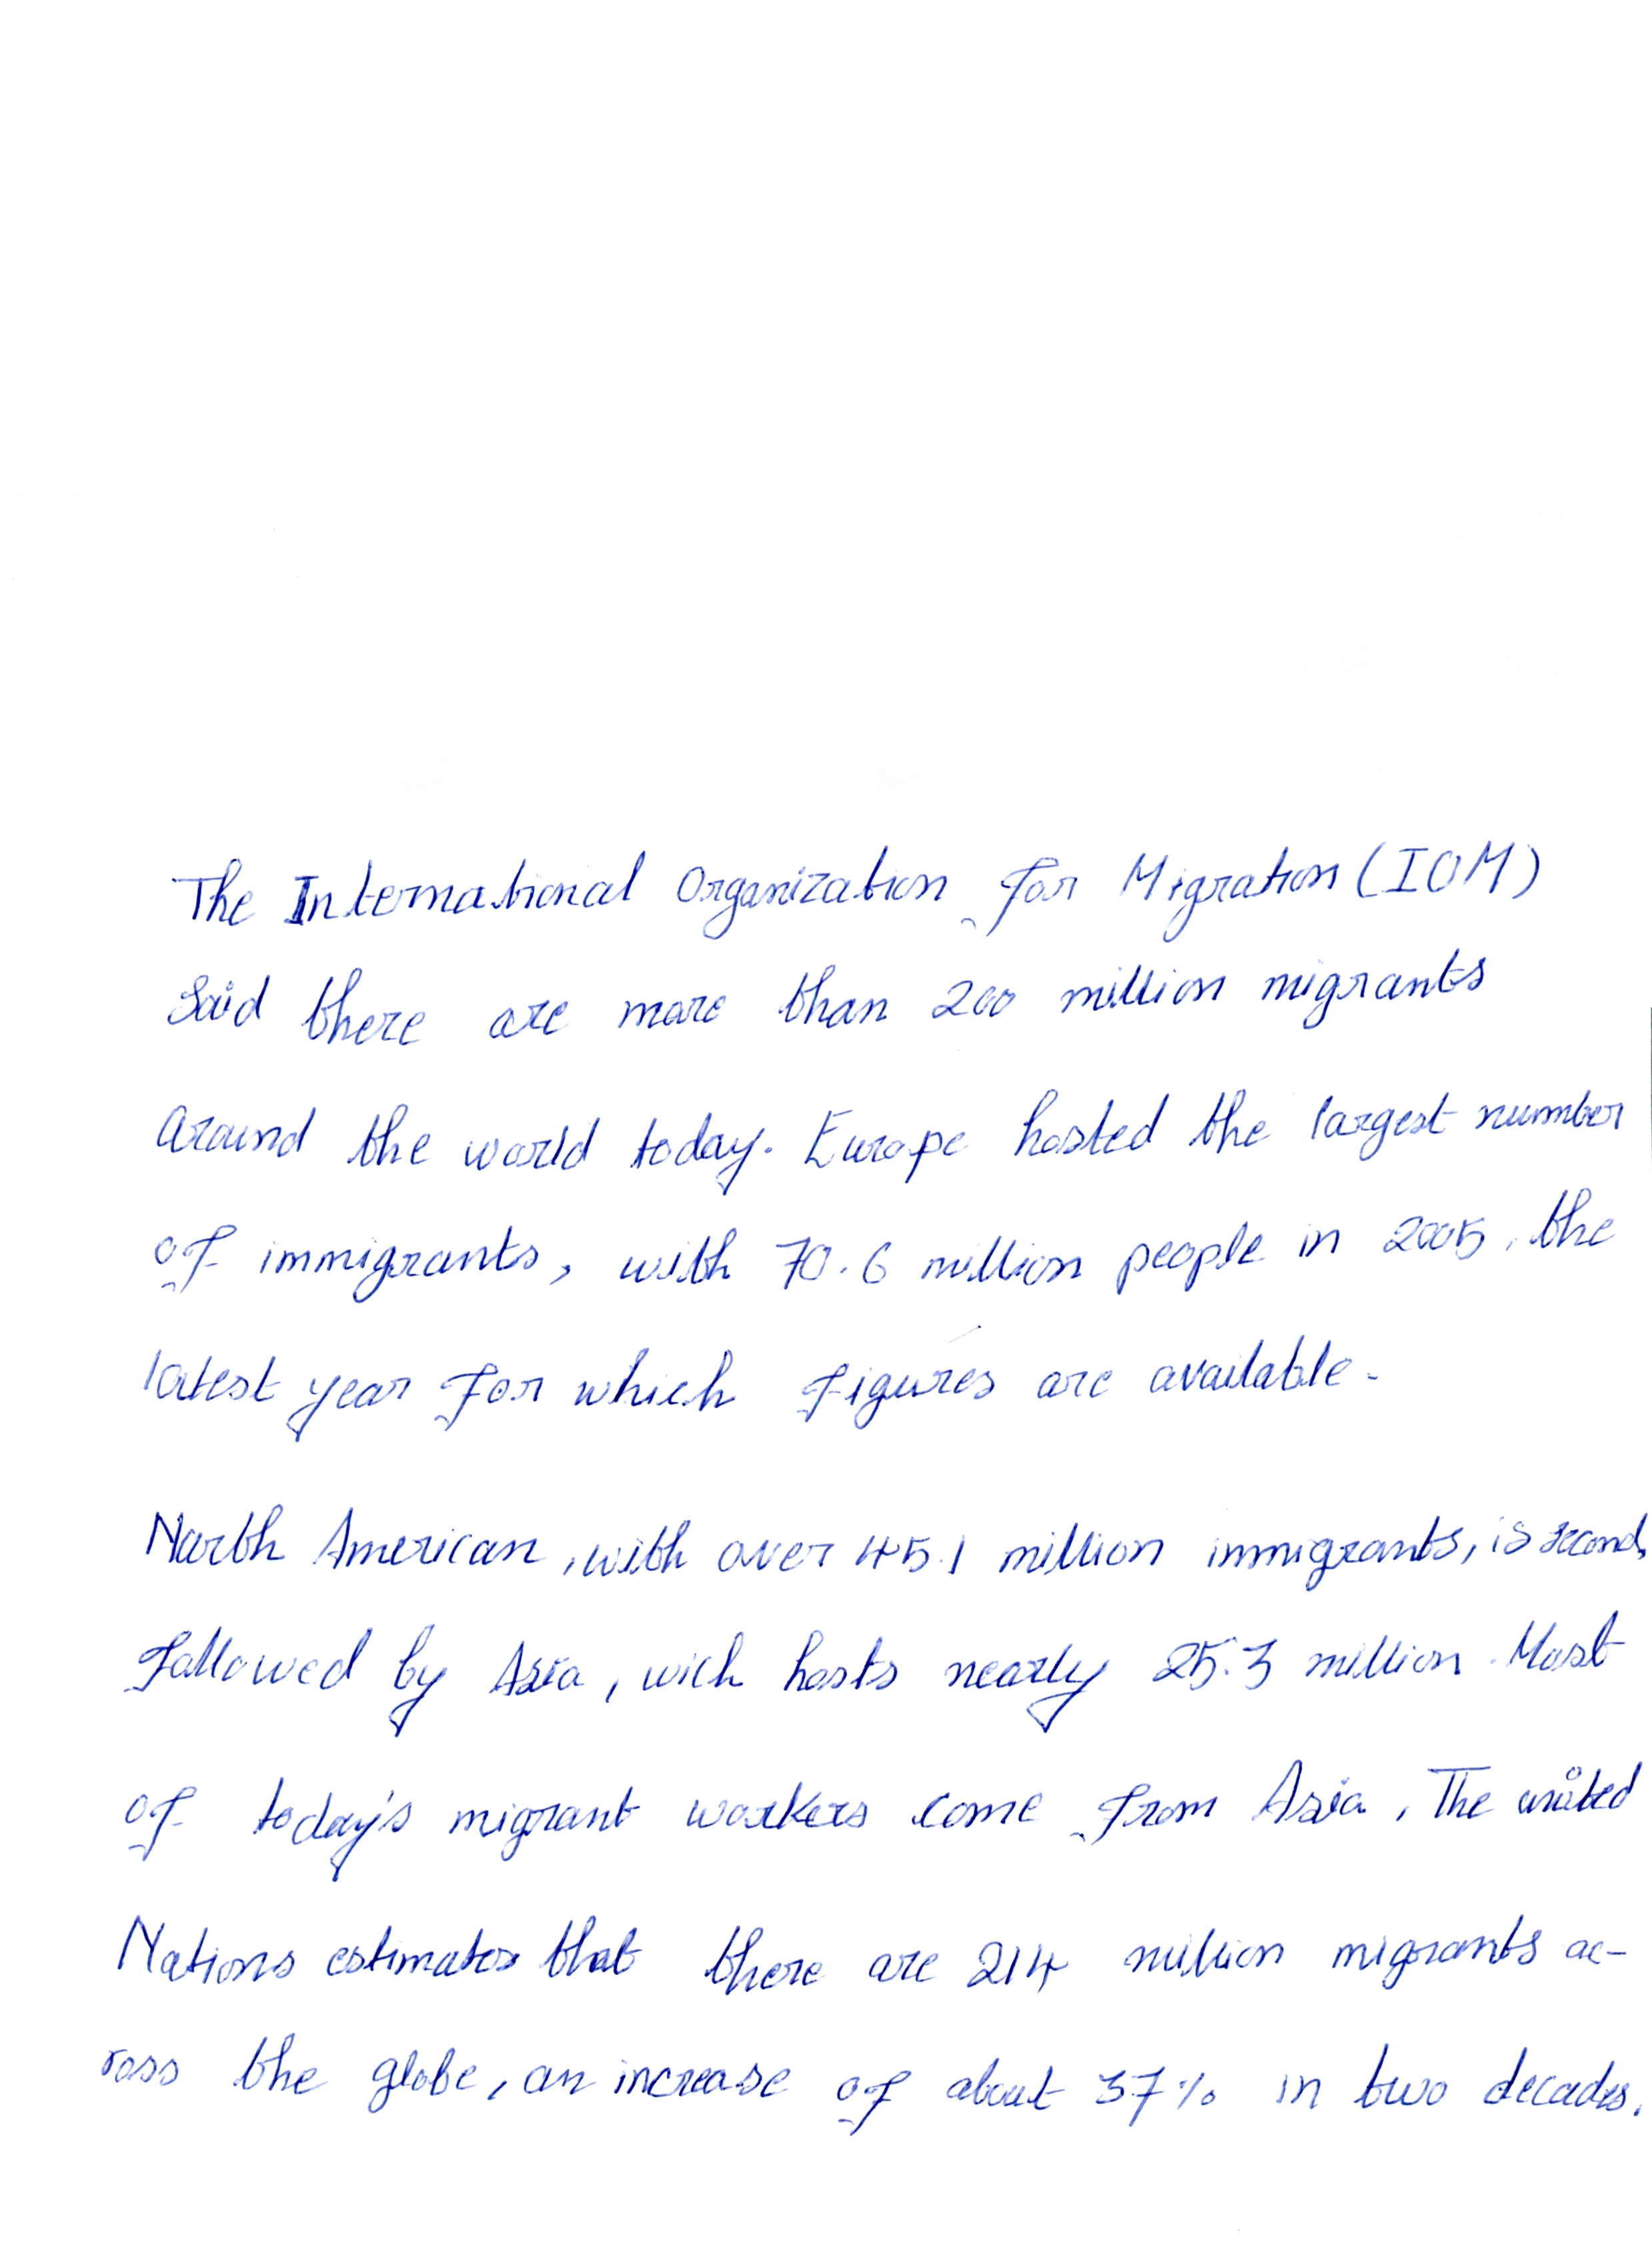 The International Organization for Migration (IOM)
Said there are more than 200 million migrants
around the world today. Europe hosted the largest number
of immigrants, with 70.6 million people in 2005, the
latest year for which figures are available.
North American, with over 45.1 million immigrants, is second,
followed by Asia, wich hosts nearly 25.3 million. Most
of today's migrant workers come from Asia. The united
Nations estimates that there are 214 million migrants ac-
ross the globe, an increase of about 37% in two decades.